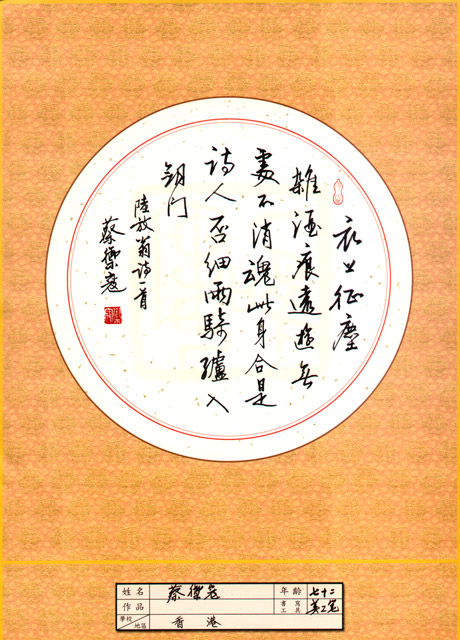 衣上征塵
雜酒痕遠遊無
處不消魂此身合是
詩人否細雨騎驢入
劍门
陸放翁詩一首
蔡傑
姓名 蔡傑 年齡 七十二
作品 書寫工具 美工笔
學校/地區 香港